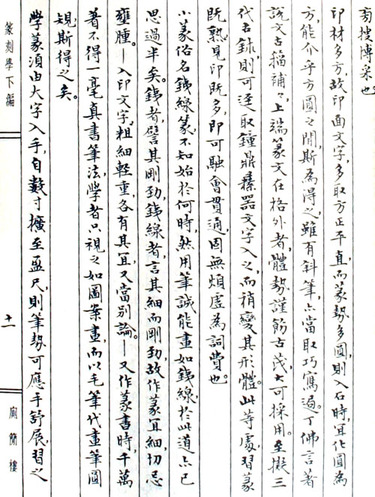 旁搜博采也。
印材多方，故印面文字，多取方正平直，而篆勢多圓，則入石時宜化圓為
方，能介乎方圓之間，斯為得之，雖有斜筆，亦當取巧寫過。丁佛言著
說文古籀補，上端篆文在格外者，體勢謹飭古茂，大可採用。至擬三
代古鉨，則可逕取鐘鼎彝器文字入之，而稍變其形體。此等處，習篆
既熟，見印既多，即可融會貫通，固無煩虛為詞費也。
小篆俗名銕線篆，不知始於何時，然用筆誠能畫如銕線，於此道亦已
思過半矣。銕者，譬其剛勁，銕線者，言其細而剛勁，故作篆宜細，切忌
癰腫。—入印文字，粗細輕重，各有其宜，又當別論。—又作篆書時，千萬
著不得一毫真書筆法，學者只視之如圖案畫，而以毛筆代畫筆圓
規斯得之矣。
學篆須由大字入手，自數寸擴至盈尺，則筆勢可應手舒展，習之
篆刻學下編
十一
廁簡樓